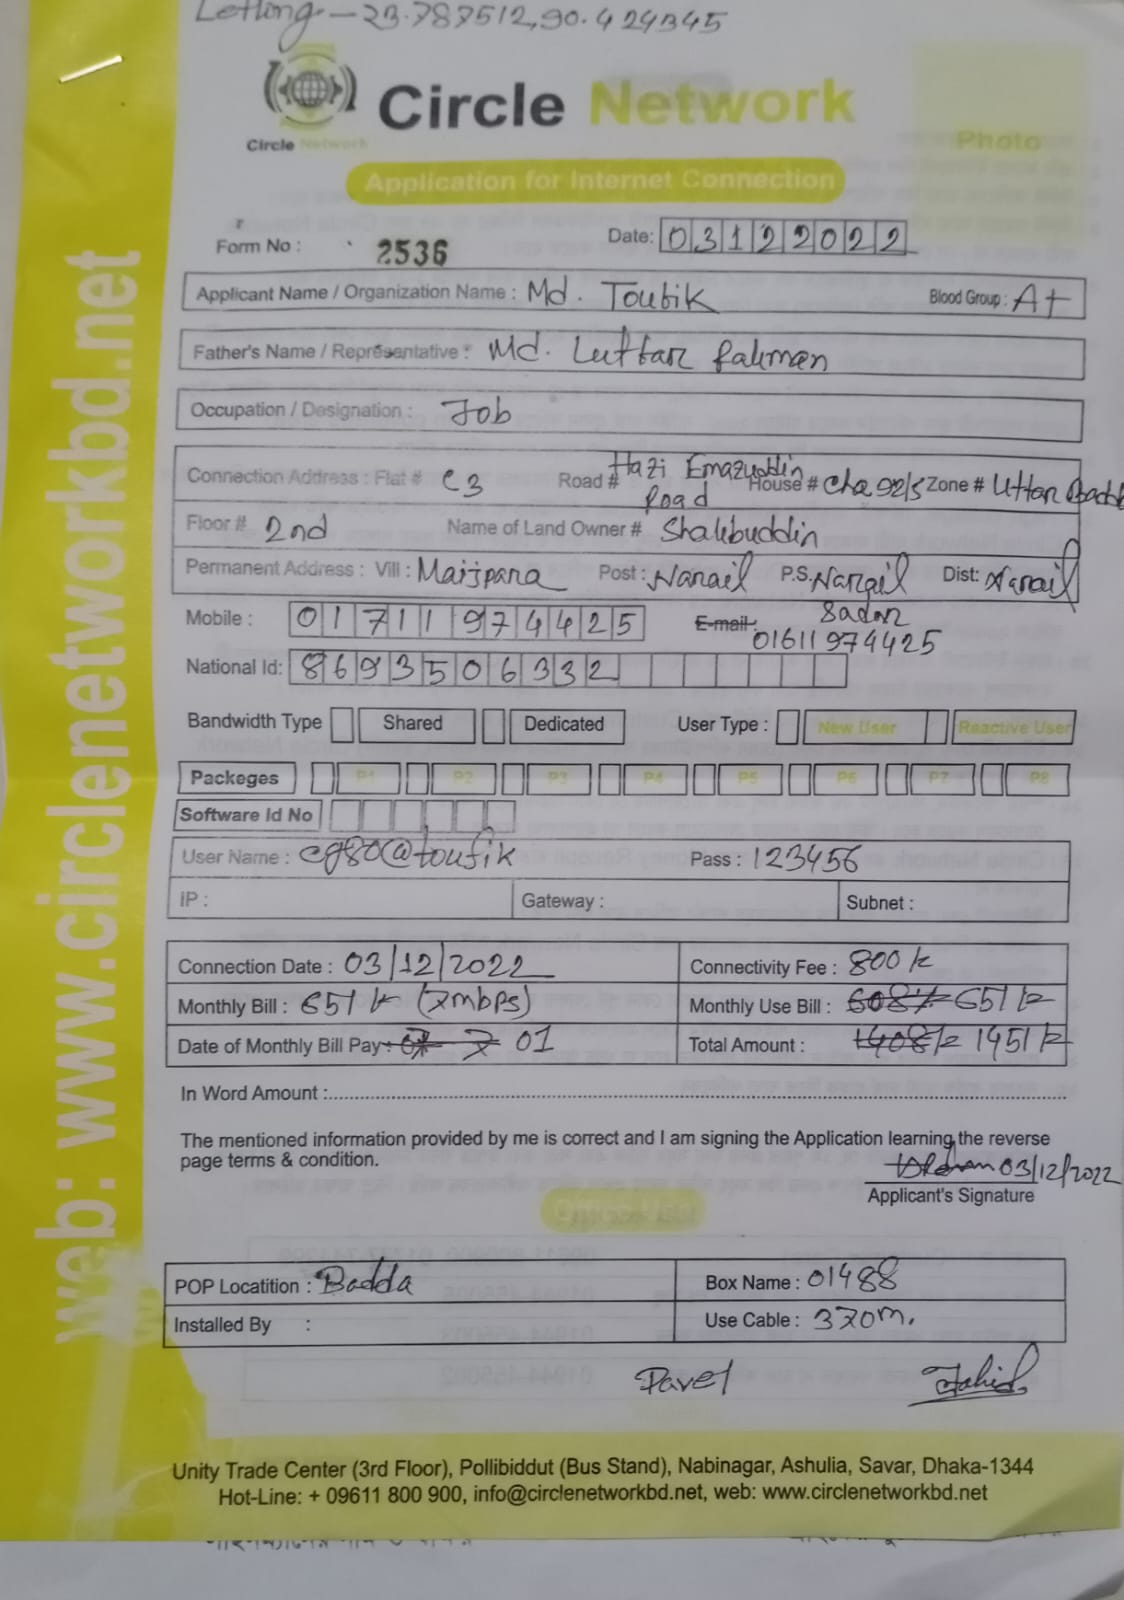 Letlong - 23.787512,90.424345
Circle Network
Circle Network
Photo
Application for Internet Connection
Form No : 2536
Date: 03122022
Applicant Name / Organization Name : Md. Toufik Blood Group : A+
Father's Name / Representative : Md. Lutfar Rahman
Occupation / Designation : Job
Connection Address : Flat # C3 Road # Hazi Emazuddin Road House # Cha 92/5 Zone # Uttar Badd
Floor # 2nd Name of Land Owner # Shalebuddin
Permanent Address : Vill : Maijpara Post : Narail P.S. Narail Sadar Dist: Narail
Mobile : 01711974425 E-mail : 01611974425
National Id: 8693506332
Bandwidth Type Shared Dedicated User Type : New User Reactive User
Packeges P1 P2 P3 P4 P5 P6 P7 P8
Software Id No
User Name : cg80@toufik Pass : 123456
IP : Gateway : Subnet :
Connection Date : 03/12/2022 Connectivity Fee : 800/=
Monthly Bill : 651/= (7mbps) Monthly Use Bill : 608/= 651/=
Date of Monthly Bill Pay : 07 7 01 Total Amount : 1408/= 1451/=
In Word Amount :
The mentioned information provided by me is correct and I am signing the Application learning the reverse
page terms & condition.
03/12/2022
Applicant's Signature
POP Locatition : Badda Box Name : 01488
Installed By : Use Cable : 320m.
Pavel Jahid
Unity Trade Center (3rd Floor), Pollibiddut (Bus Stand), Nabinagar, Ashulia, Savar, Dhaka-1344
Hot-Line: + 09611 800 900, info@circlenetworkbd.net, web: www.circlenetworkbd.net
web: www.circlenetworkbd.net